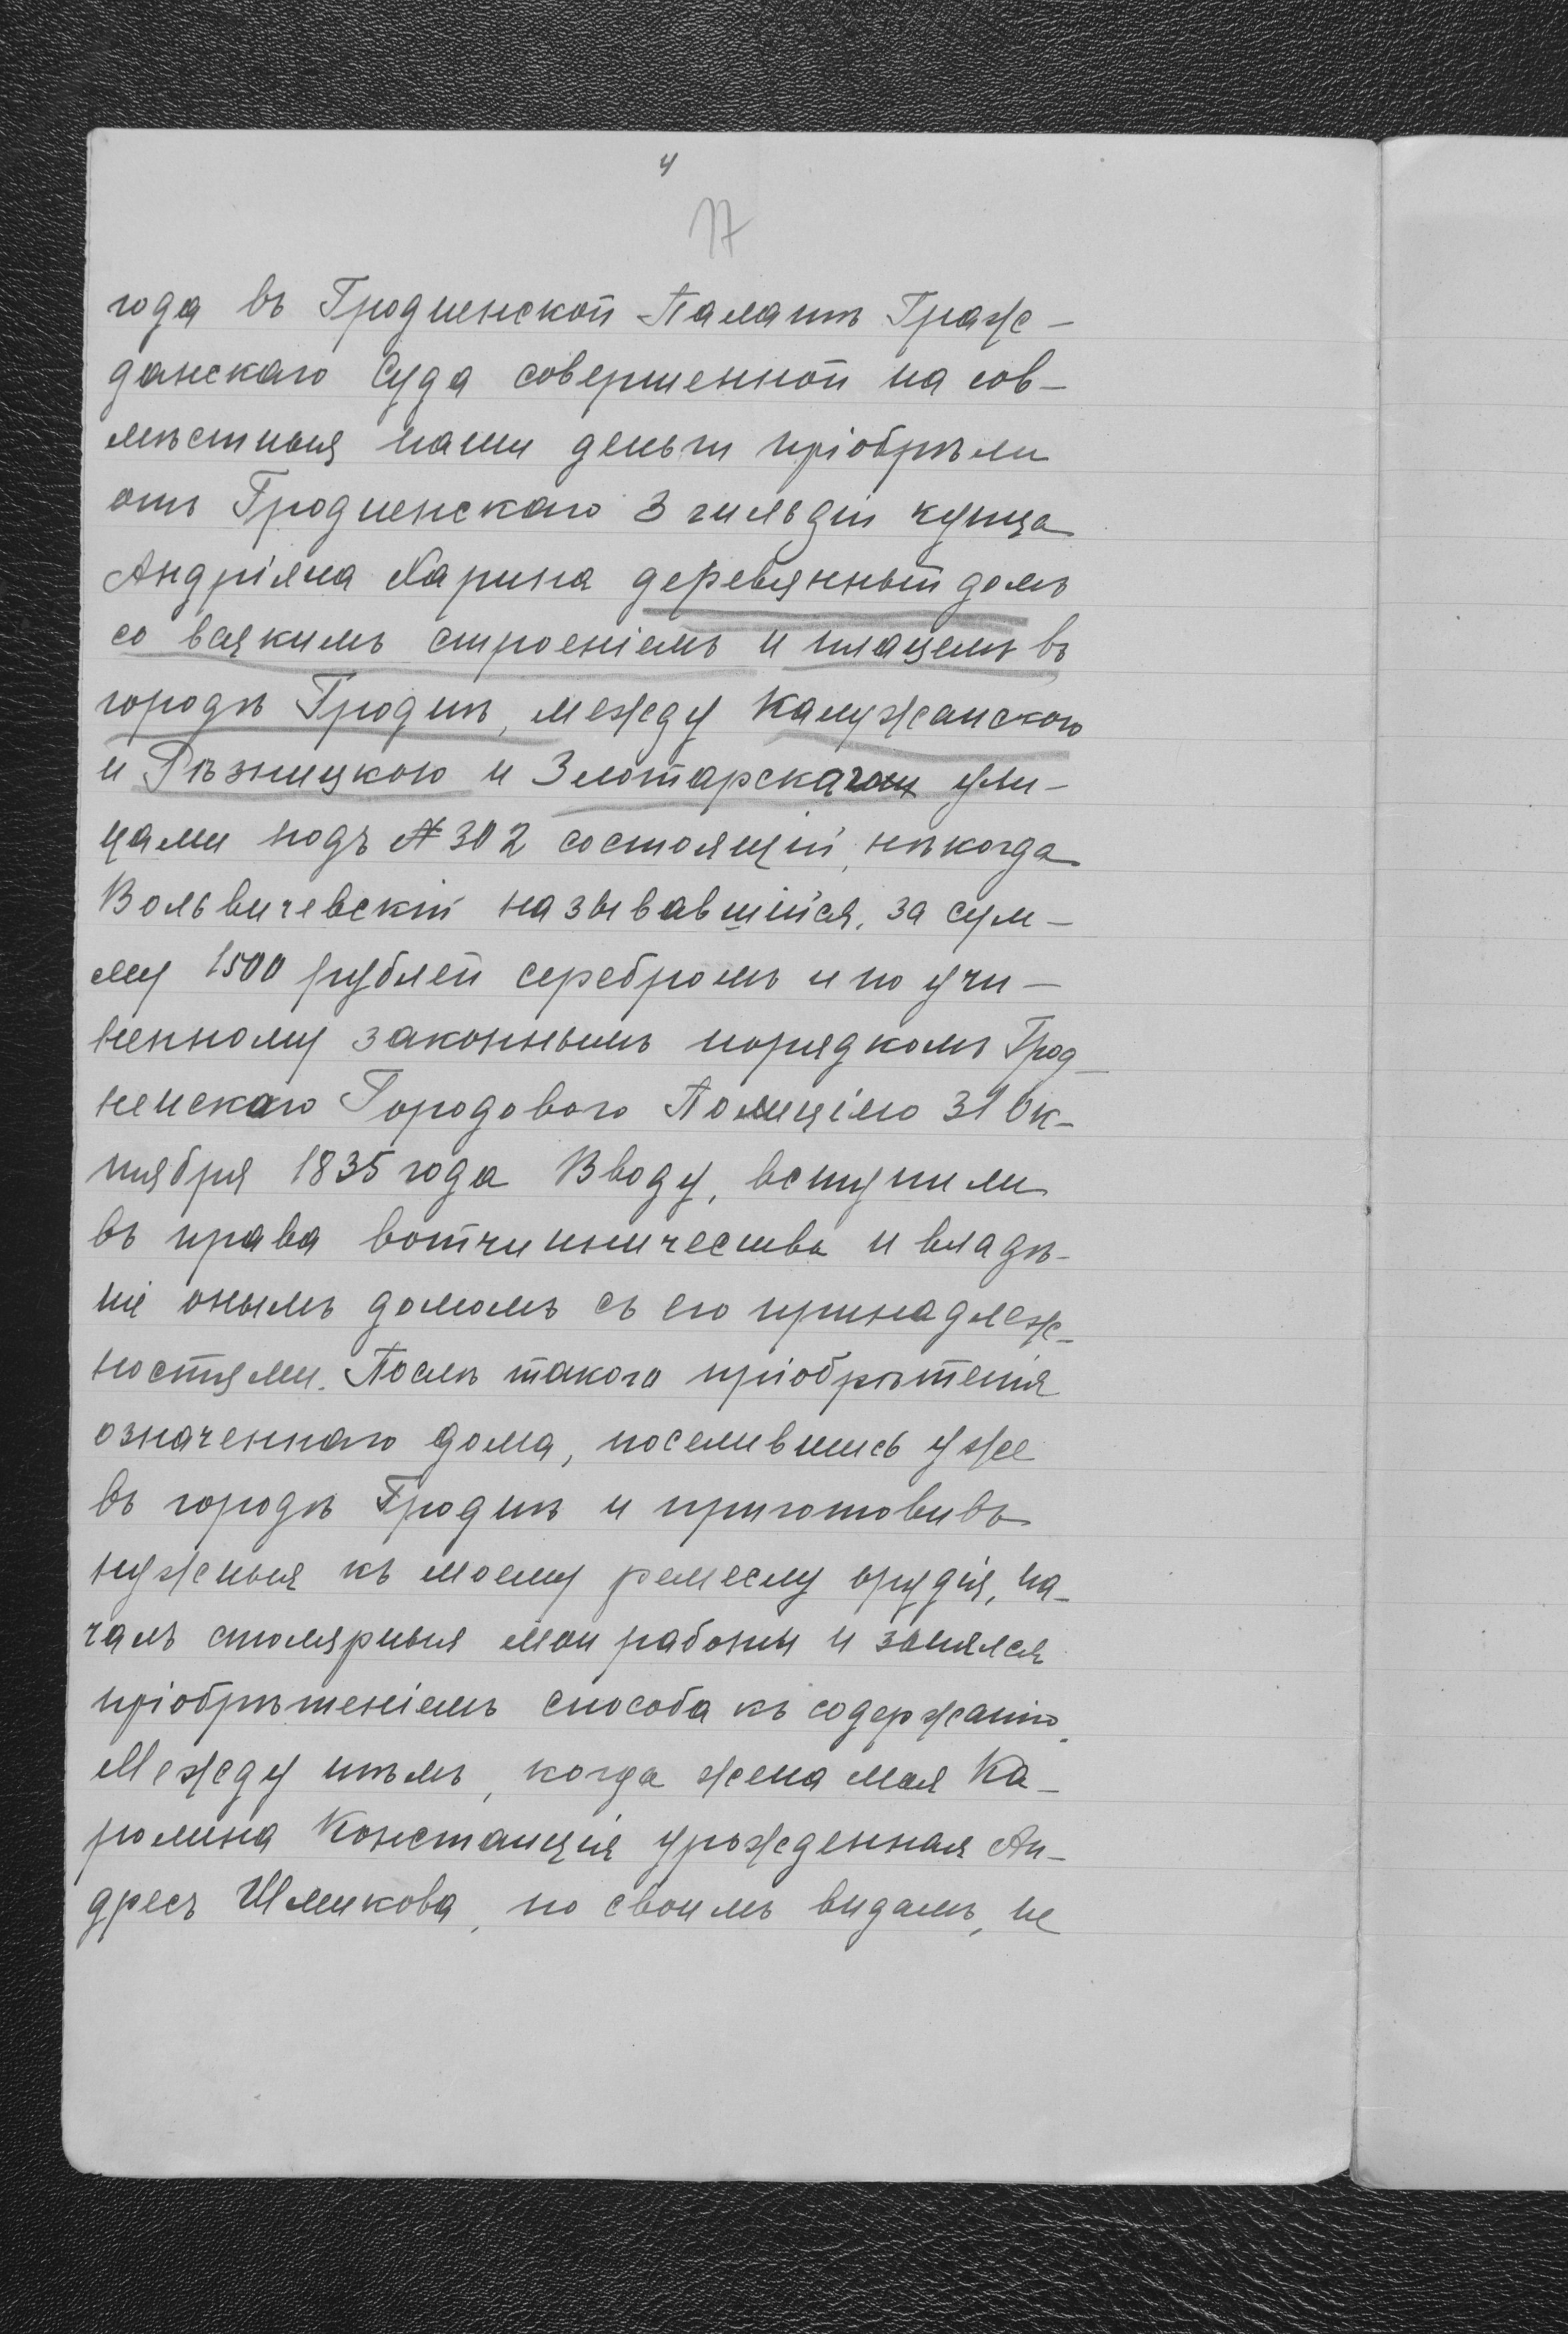 4
17
года въ Гродненской Палатѣ Граж-
данскаго Суда совершенной на сов-
мѣстныя наши деньги пріобрѣли
отъ Гродненскаго 3 гильдіи купца
Андріяна Ларина деревянный домъ
со всякимъ строеніемъ и плацемъ въ
городѣ Гроднѣ, между Калужанскою
и Рѣзницкою и Злотарскаго ули-
цами подъ № 302 состоящій, нѣкогда
Вольвичевскій называвшійся, за сум-
му 1500 рублей серебромъ и по учи-
ненному законнымъ порядкомъ Грод-
ненскаго Городового Полиціею 31 Ок-
тября 1835 года Вводу, вступили
въ права вотчинничества и владѣ-
ніе онымъ домомъ съ его принадлеж-
ностями. Послѣ такого пріобрѣтенія
означеннаго дома, поселившись уже
въ городѣ Гроднѣ и приготовивъ
нужныя къ моему ремеслу орудія, на-
чалъ столярныя мои работы и занялся
пріобрѣтеніемъ способа къ содержанію.
Между тѣмъ, когда жена моя Ка-
ролина Констанція урожденная Ан-
дресъ Шликова, по своимъ видамъ, не